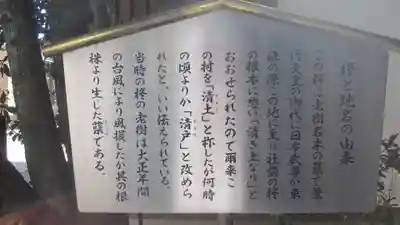 柊と地名の由来
この柊は老樹名木の蘖で景
行天皇の御代に日本武尊が東
の根本に憩い「清き土なり」と
おおせられたので爾来こ
の村を「清土」と称したが何時
の頃よりか「清戸」と改めら
れたと、いい伝えられている。
当時の柊の老樹は大正年間
の台風により風損したが其の根
株より生じた蘖である。